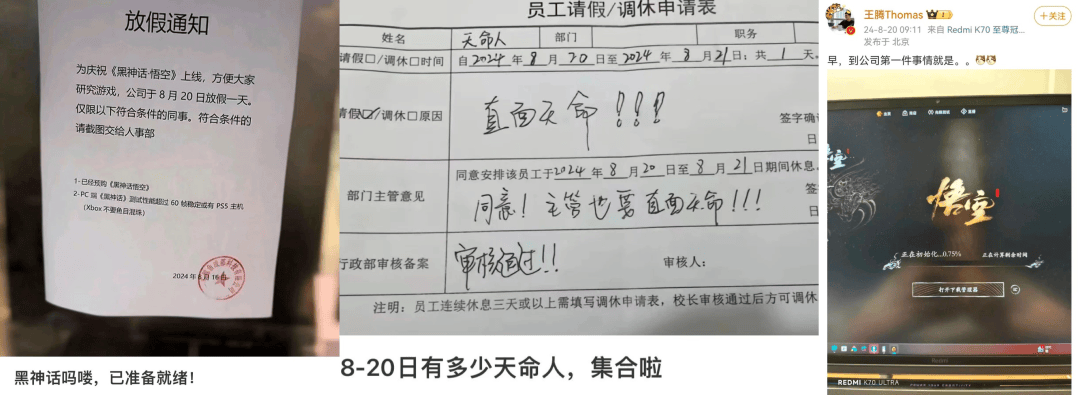 放假通知
为庆祝《黑神话·悟空》上线，方便大家
研究游戏，公司于 8 月 20 日放假一天。
仅限以下符合条件的同事。符合条件的
请截图交给人事部
1-已经预购《黑神话悟空》
2-PC 端《黑神话》测试性能超过 60 帧稳定或有 PS5 主机
（Xbox 不要鱼目混珠）
2024 年 8 月 16 日
黑神话吗喽，已准备就绪！
员工请假/调休申请表
姓名 天命人 部门 职务
请假□/调休□时间 自2024年8月20日至2024年8月21日；共1天。
请假☑/调休□原因 直面天命！！！
签字确
日
部门主管意见 同意安排该员工于2024年8月20日至8月21日期间休息。
同意！主管也要直面天命！！！
签
日
行政部审核备案 审核通过！！ 审核人：
注明：员工连续休息三天或以上需填写调休申请表，校长审核通过后方可调休
8-20日有多少天命人，集合啦
王腾Thomas
+关注
24-8-20 09:11 来自 Redmi K70 至尊冠...
发布于 北京
早，到公司第一件事情就是。。
悟空
正在初始化...0.75% 正在计算剩余时间
打开下载管理器
Redmi
REDMI K70 ULTRA